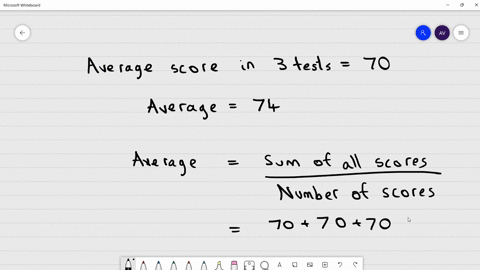 Microsoft Whiteboard
AV
Average score in 3 tests = 70
Average = 74
Average = Sum of all scores
Number of scores
= 70 + 70 + 70